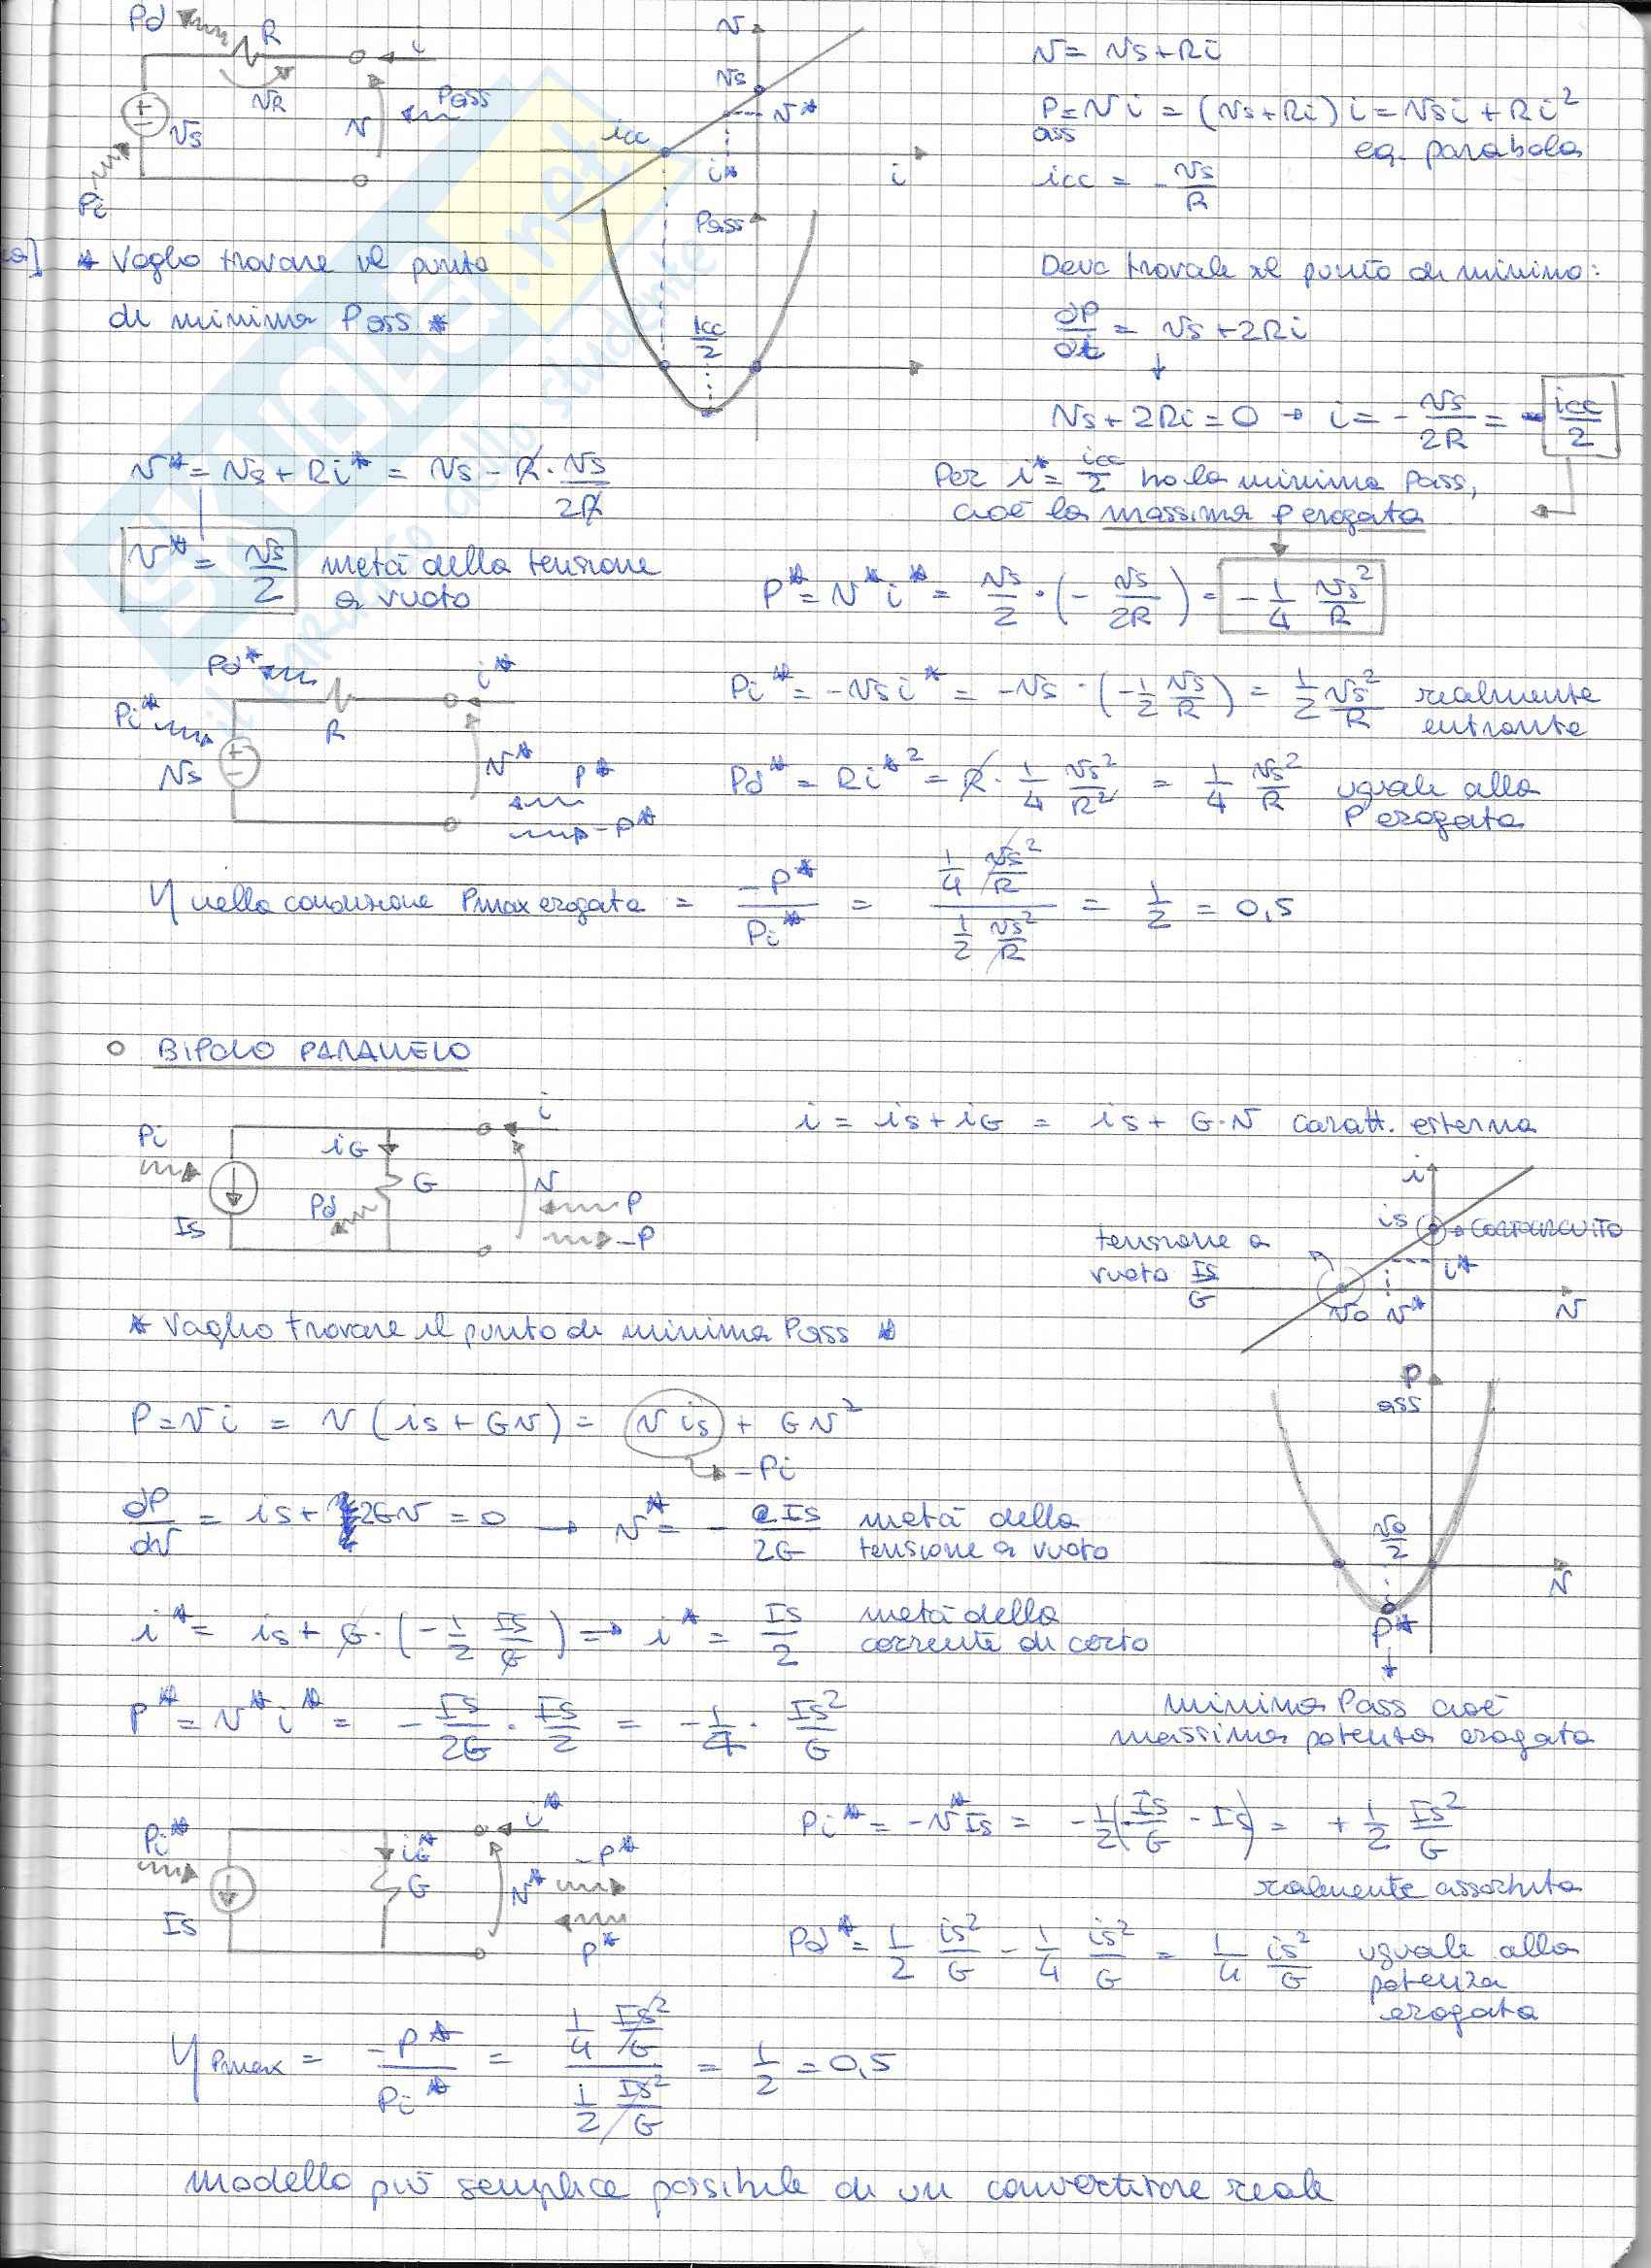 Pd
R
i
vR
Vs
v
Pass
Pi
v
vs
v*
icc
i*
i
v = vs + Ri
Pass = v i = (vs + Ri) i = vs i + Ri²
eq. parabola
icc = - vs/R
* Voglio trovare il punto
di minima Pass *
Pass
icc/2
Devo trovare il punto di minimo:
∂P/∂i = vs + 2Ri
vs + 2Ri = 0 → i = - vs/2R = icc/2
v* = vs + Ri* = vs - R · vs/2R
Per i* = icc/2 ho la minima Pass,
cioè la massima P erogata
v* = vs/2 metà della tensione
a vuoto
P* = v* i* = vs/2 · (- vs/2R) = - 1/4 vs²/R
Pd*
i*
Pi*
R
Vs
v*
P*
-P*
Pi* = -vs i* = -vs · (- 1/2 vs/R) = 1/2 vs²/R realmente
entrante
Pd* = Ri*² = R · 1/4 vs²/R² = 1/4 vs²/R uguale alla
P erogata
η nella condizione Pmax erogata = -P*/Pi* = (1/4 vs²/R)/(1/2 vs²/R) = 1/2 = 0,5
o BIPOLO PARALLELO
Pi
iG
i
G
v
Pd
Is
P
-P
i = is + iG = is + G·v caratt. esterna
i
is
cortocircuito
tensione a
vuoto Is/G
i*
vo
v*
v
* Voglio trovare il punto di minima Pass *
P = v i = v (is + Gv) = v is + Gv²
-Pi
P
ass
dP/dv = is + 2Gv = 0 → v* = - Is/2G metà della
tensione a vuoto
vo/2
v
P*
i* = is + G · (- 1/2 Is/G) → i* = Is/2 metà della
corrente di corto
P* = v* i* = - Is/2G · Is/2 = - 1/4 · Is²/G
minima Pass cioè
massima potenza erogata
Pi*
iG*
G
i*
v*
-P*
P*
Is
Pi* = -v* Is = - 1/2 (Is/G - Is) = + 1/2 Is²/G
realmente assorbita
Pd* = 1/2 is²/G - 1/4 is²/G = 1/4 is²/G uguale alla
potenza
erogata
η Pmax = -P*/Pi* = (1/4 Is²/G)/(1/2 Is²/G) = 1/2 = 0,5
modello più semplice possibile di un convertitore reale
SKUOLA.net